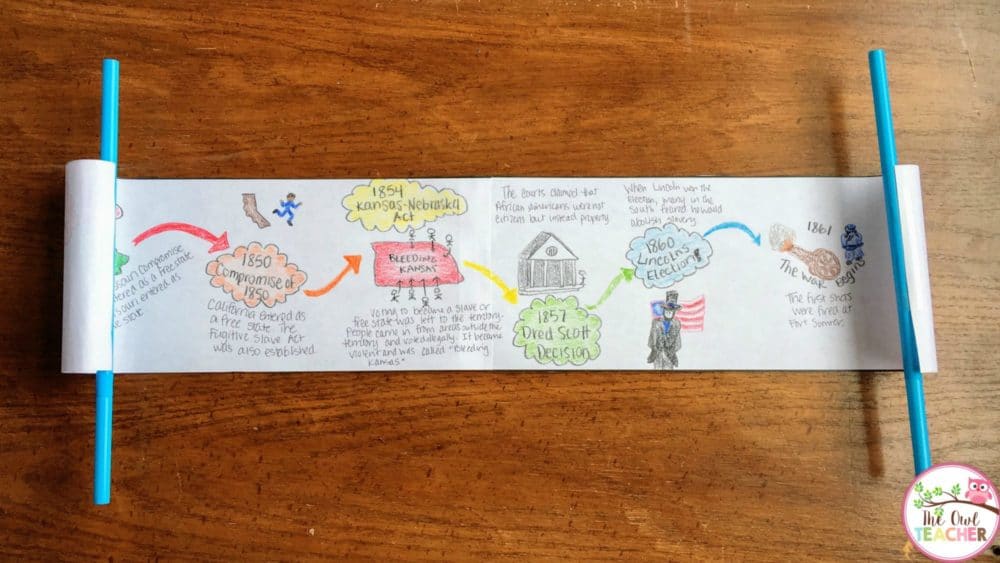 Compromise
tered as a free state
souri entered as
state
1850
Compromise of
1850
California entered as
a free state. The
Fugitive Slave Act
was also established
1854
Kansas-Nebraska
Act
BLEEDING
KANSAS
Voting to become a slave or
free state was left to the territory.
People came in from areas outside the
territory and voted illegally. It became
violent and was called "Bleeding
Kansas"
The courts claimed that
African Americans were not
citizens but instead property.
1857
Dred Scott
Decision
When Lincoln won the
Election, many in the
South feared he would
abolish slavery.
1860
Lincoln's
Election
1861
The War Begins
The first shots
were fired at
Fort Sumner.
The Owl
TEACHER